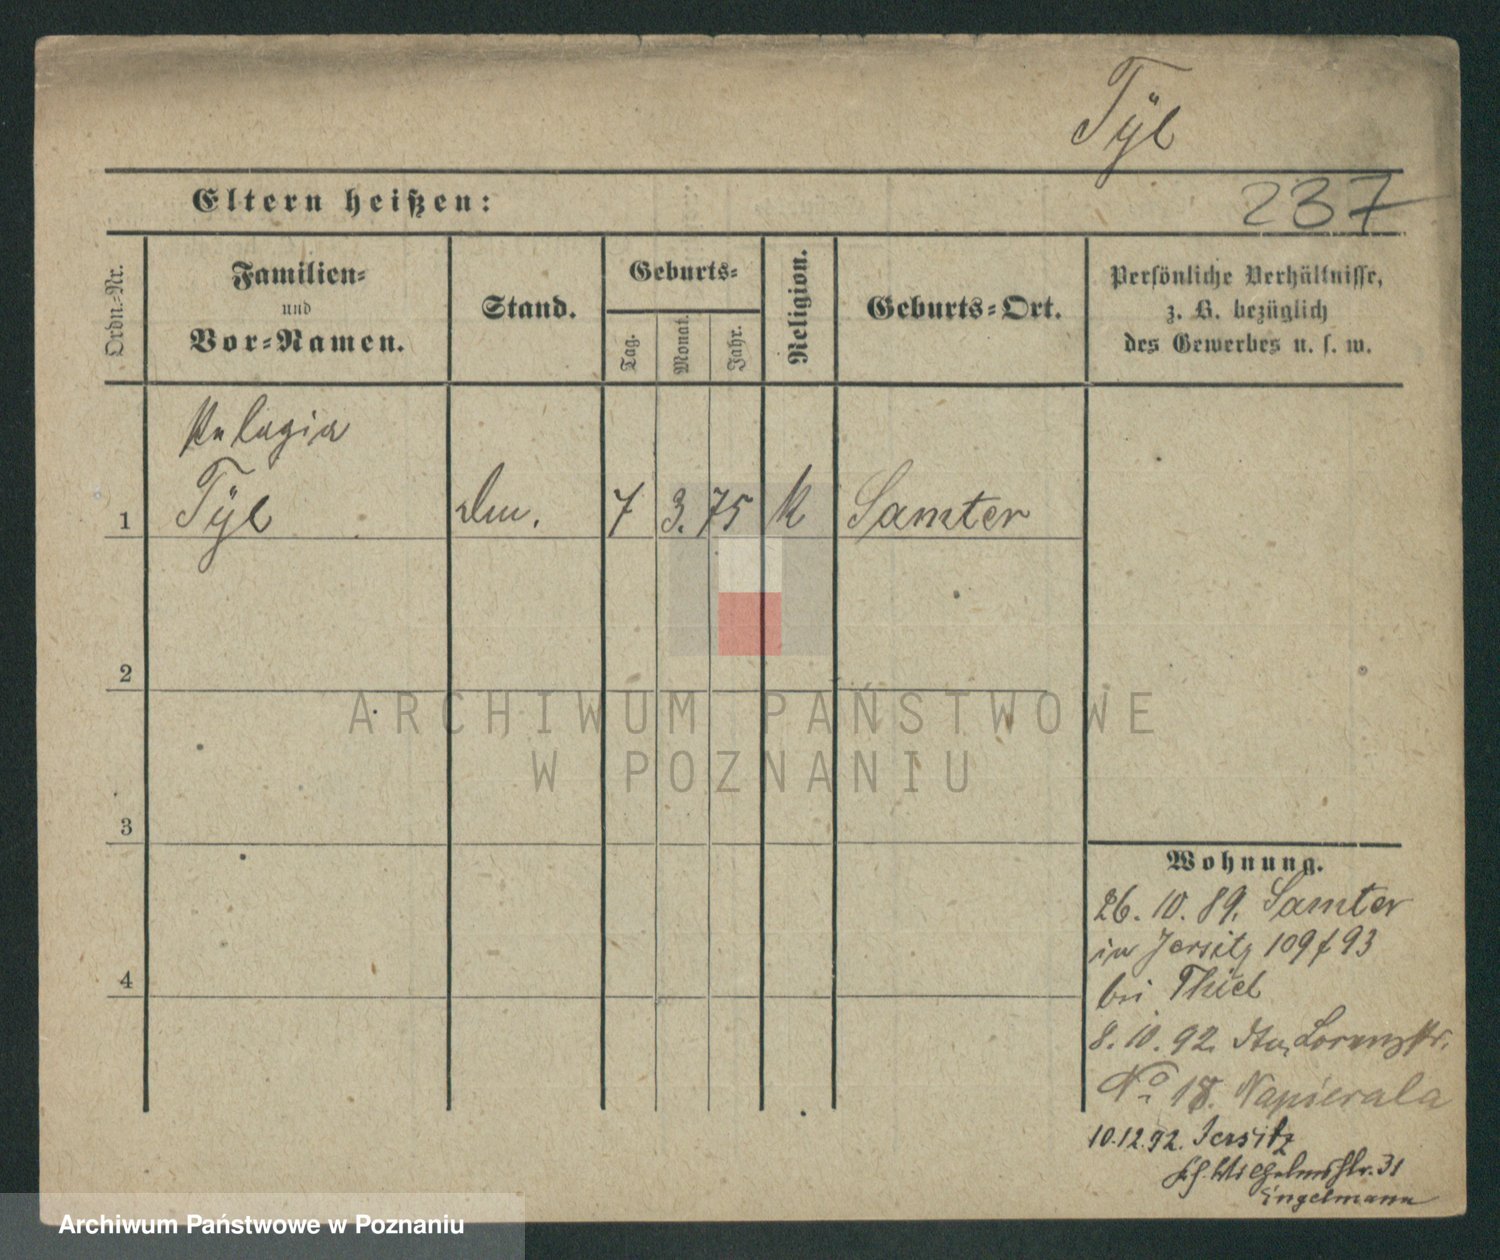 Tÿl
Eltern heißen:
237
Ordn.-Nr.
Familien-
und
Vor-Namen.
Stand.
Geburts-
Tag.
Monat.
Jahr.
Religion.
Geburts-Ort.
Persönliche Verhältnisse,
z. B. bezüglich
des Gewerbes u. s. w.
Pelagia
1 Tÿl
7 3. 75 k Samter
2
ARCHIWUM PAŃSTWOWE
W POZNANIU
3
Wohnung.
26. 10. 89. Samter
in Jersitz 109 f 93
bei Thiel
4
8. 10. 92. Lorenzstr.
No 18. Napierala
10.12.92. Jersitz
Wilhelmstr. 31
Engelmann
Archiwum Państwowe w Poznaniu